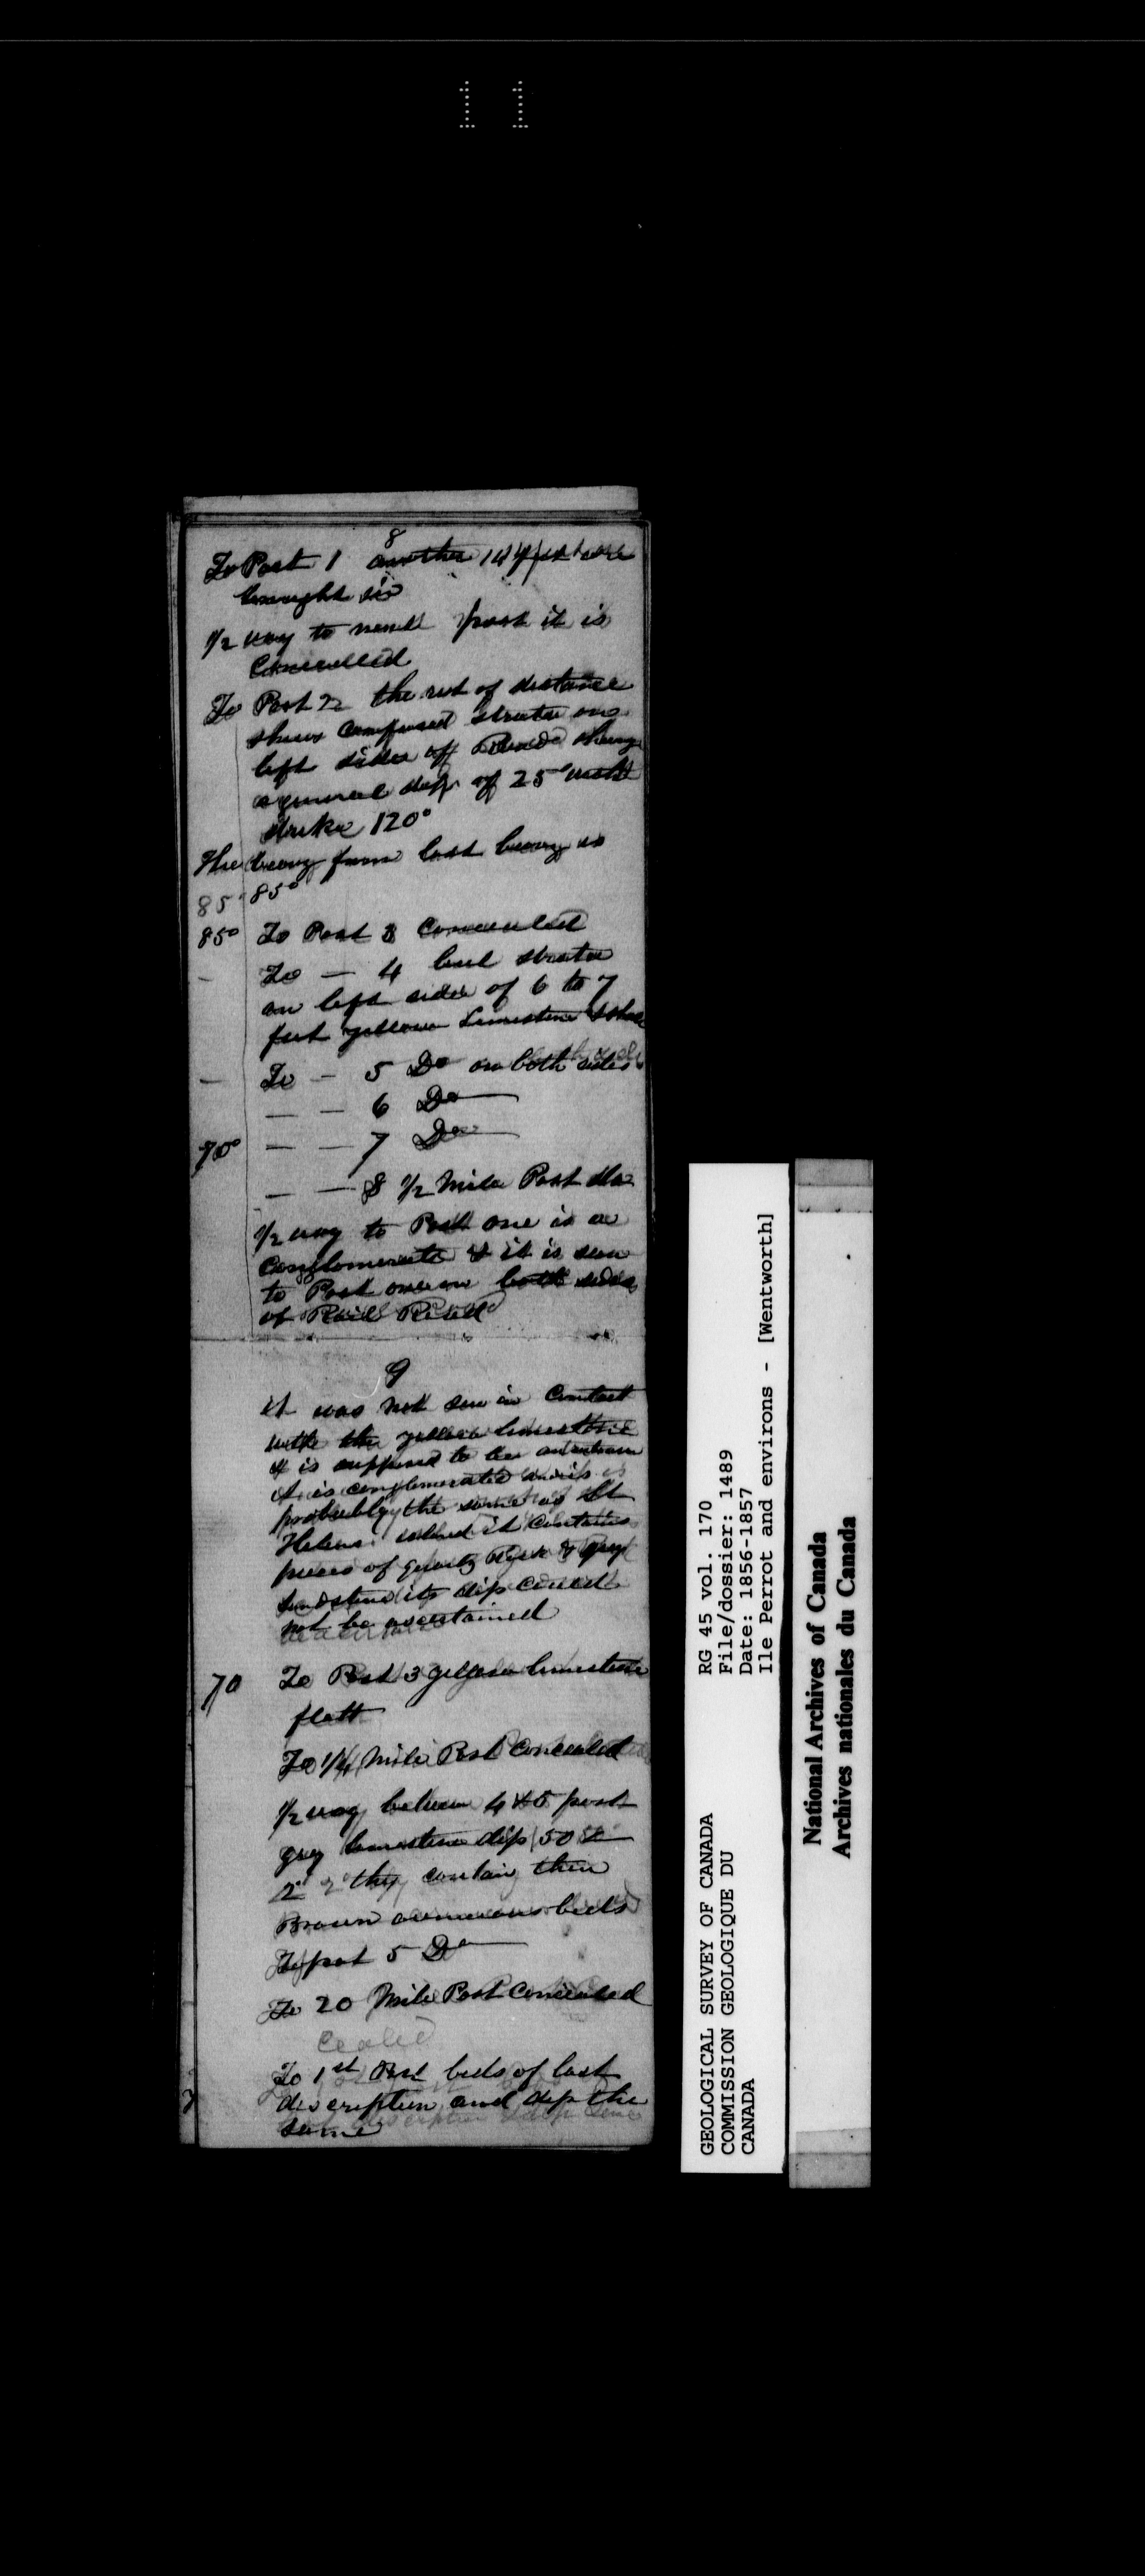 11
8
To Post 1 another 14 feet were
brought in
1/2 way to next post it is
Concealled
To Post 2 the rest of distance
shows exposed strata on
left side off Road having
a general dip of 25° with
strike 120°
The bearing from last bearing is
85° 85°
85° To Post 3 Concealed
- To — 4 level strata
on left side of 6 to 7
feet yellow Limestone
— To — 5 Do on both sides
— — 6 Do
70° — — 7 Do
— — 8 1/2 Mile Post Do
1/2 way to Post one is a
Conglomerate & it is seen
to Post one on both sides
of Rail Road
9
it was not seen in Contact
with the yellow limestone
it is supposed to be
it is conglomerate and is
probably the same as St
Helens Island it Contains
pieces of quartz & grey
sandstone its dip could
not be ascertained
70 To Post 3 yellow limestone
flatt
To 1/4 Mile Post Concealed
1/2 way between 4 & 5 post
grey limestone dip 50
2° they contain thin
Brown arenaceous beds
To post 5 Do
To 20 Mile Post Concealed
cealed
To 1st Post beds of last
description and dip the
same
GEOLOGICAL SURVEY OF CANADA
COMMISSION GEOLOGIQUE DU
CANADA
RG 45 vol. 170
File/dossier: 1489
Date: 1856-1857
Ile Perrot and environs - [Wentworth]
National Archives of Canada
Archives nationales du Canada